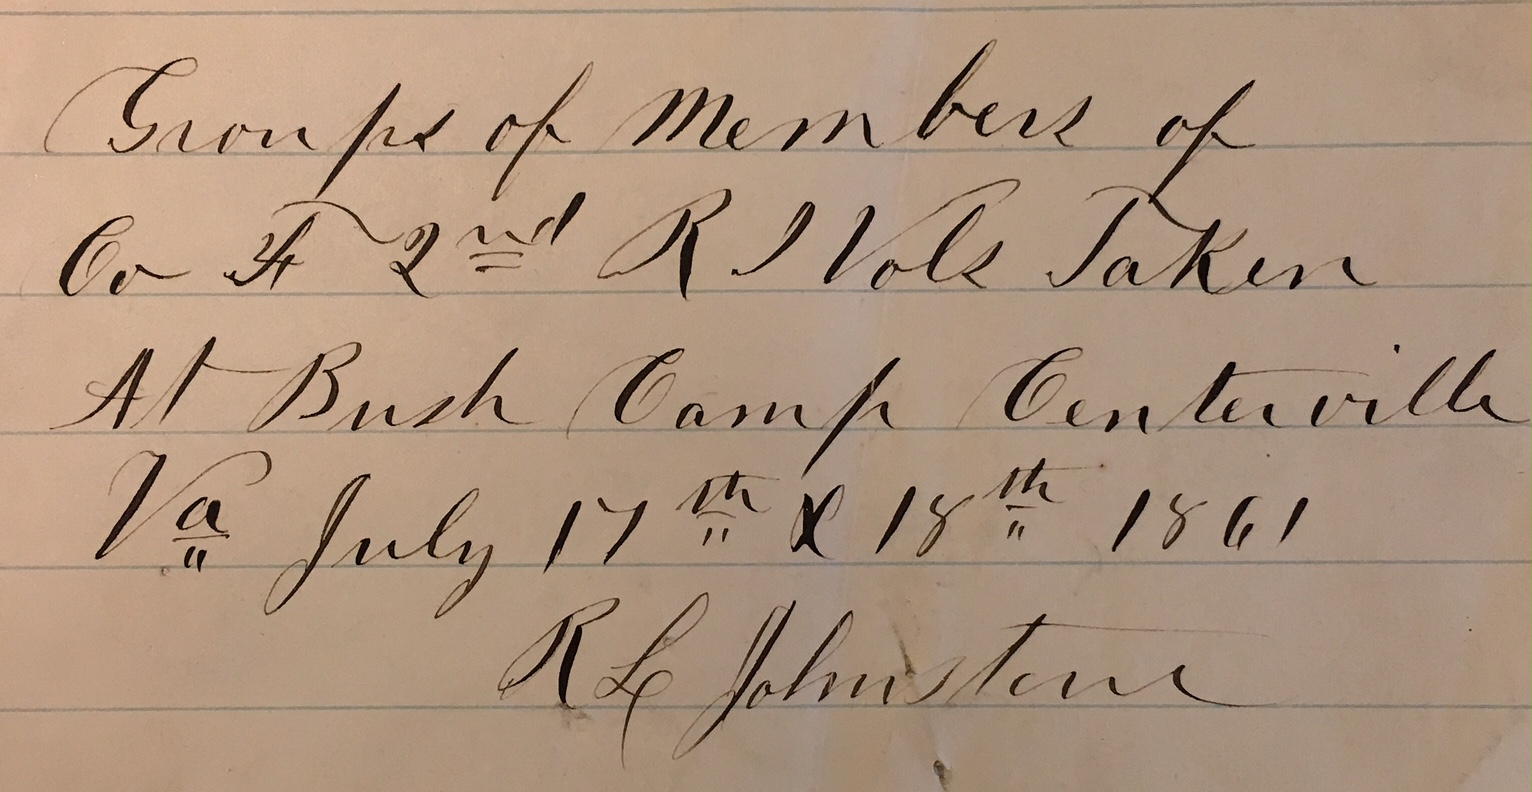 Groups of Members of
Co F 2nd R I Vols Taken
At Bush Camp Centerville
Va July 17th & 18th 1861
R L Johnston